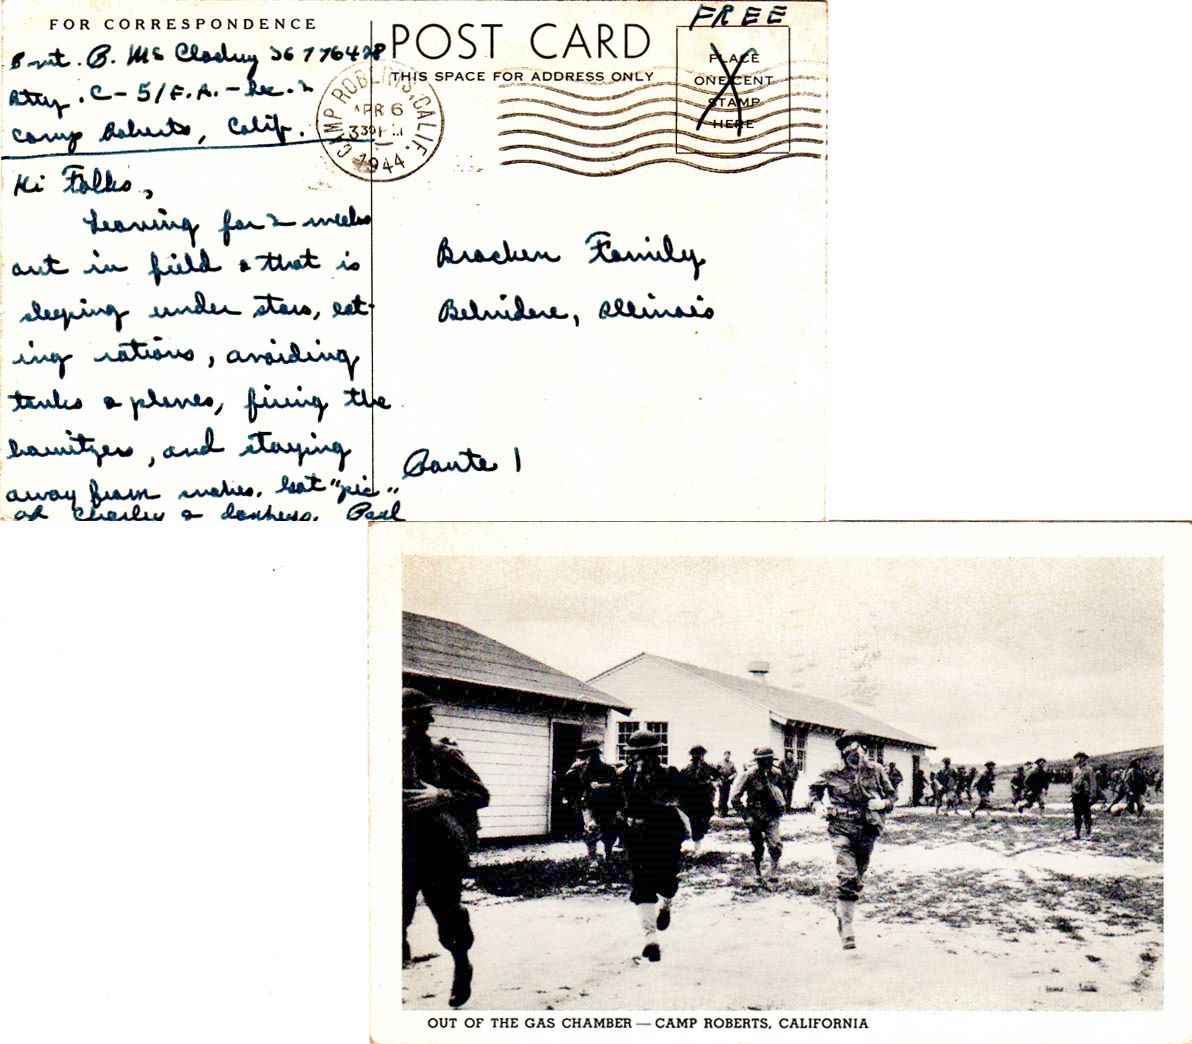 FOR CORRESPONDENCE
Pvt. P. Mc Closkey 36776428
Btry. C-51/F.A.-Rec. 2
Camp Roberts, Calif.
Hi Folks,
Leaving for 2 weeks
out in field & that is
sleeping under stars, eat-
ing rations, avoiding
tanks & planes, firing the
howitzers, and staying
away from snakes. Got "pic"
of Charley & donkeys. Paul
POST CARD
THIS SPACE FOR ADDRESS ONLY
FREE
PLACE
ONE CENT
STAMP
HERE
CAMP ROBERTS, CALIF.
APR 6
330 PM
1944
Bracken Family
Belvidere, Illinois
Route 1
OUT OF THE GAS CHAMBER — CAMP ROBERTS, CALIFORNIA